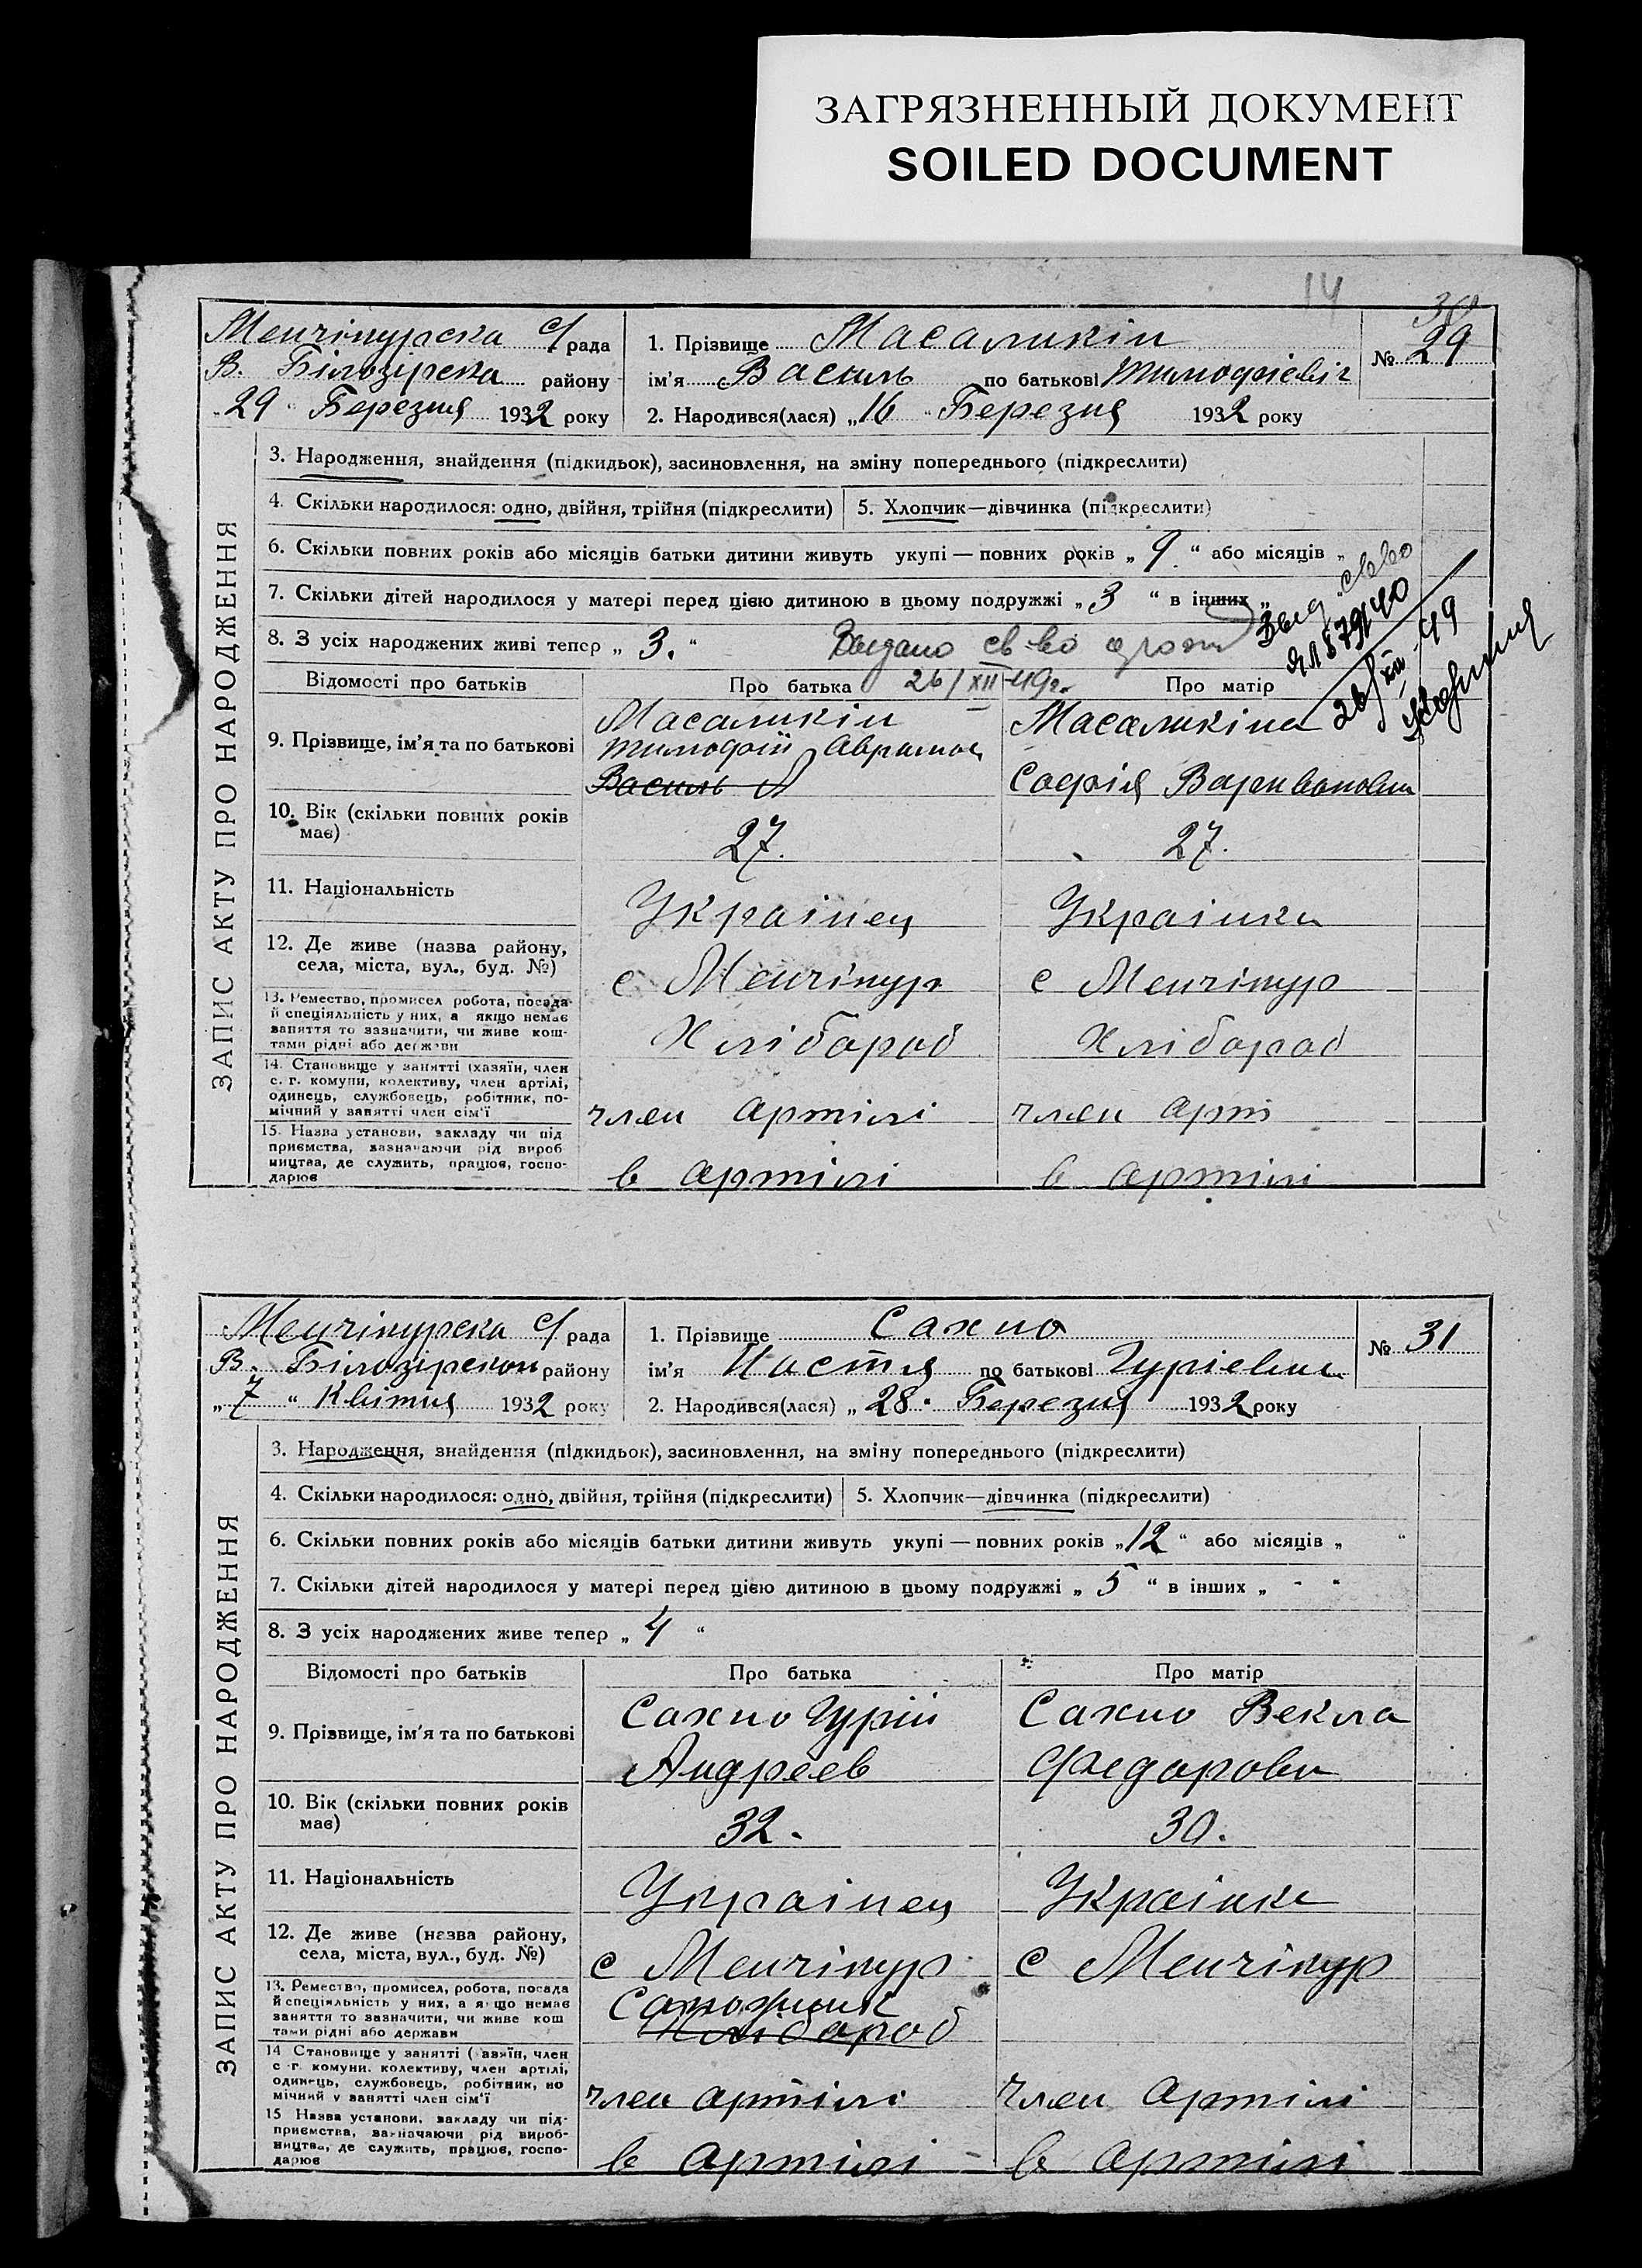 ЗАГРЯЗНЕННЫЙ ДОКУМЕНТ
SOILED DOCUMENT
14
30
Менчікурска с/рада
В. Білозірска району
„29“ Березня 1932 року
1. Прізвище Масаликін
ім'я Василь по батькові Тимофієвіч
2. Народився(лася) „16“ Березня 1932 року
№ 29
ЗАПИС АКТУ ПРО НАРОДЖЕННЯ
3. Народження, знайдення (підкидьок), засиновлення, на зміну попереднього (підкреслити)
4. Скільки народилося: одно, двійня, трійня (підкреслити)
5. Хлопчик—дівчинка (підкреслити)
6. Скільки повних років або місяців батьки дитини живуть укупі — повних років „9“ або місяців „
7. Скільки дітей народилося у матері перед цією дитиною в цьому подружжі „3“ в інших „
8. З усіх народжених живі тепер „3.“
Видано св-во
26/XII-49г.
26/XII-49
Відомості про батьків
Про батька
Про матір
9. Прізвище, ім'я та по батькові
Масаликін
Тимофій Аврамов
Василь А
Масаликіна
Софія
10. Вік (скільки повних років має)
27.
27.
11. Національність
Українец
Українка
12. Де живе (назва району, села, міста, вул., буд. №)
с Менчікур
с Менчікур
13. Ремество, промисел робота, посада й спеціяльність у них, а якщо немає заняття то зазначити, чи живе коштами рідні або держави
Хлібороб
Хлібороб
14. Становище у занятті (хазяїн, член с. г. комуни, колективу, член артілі, одинець, службовець, робітник, помічний у занятті член сім'ї
член артілі
член арті
15. Назва установи, закладу чи під приємства, зазначаючи рід вироб ництва, де служить, працює, господарює
в артілі
в артілі
Менчікурска с/рада
В. Білозірскои району
„7“ Квітня 1932 року
1. Прізвище Сахно
ім'я Настя по батькові Гурієвна
2. Народився(лася) „28“ Березня 1932 року
№ 31
ЗАПИС АКТУ ПРО НАРОДЖЕННЯ
3. Народження, знайдення (підкидьок), засиновлення, на зміну попереднього (підкреслити)
4. Скільки народилося: одно, двійня, трійня (підкреслити)
5. Хлопчик—дівчинка (підкреслити)
6. Скільки повних років або місяців батьки дитини живуть укупі — повних років „12“ або місяців „ “
7. Скільки дітей народилося у матері перед цією дитиною в цьому подружжі „5“ в інших „-“
8. З усіх народжених живе тепер „4“
Відомості про батьків
Про батька
Про матір
9. Прізвище, ім'я та по батькові
Сахно Гурій
Андреєв
Сахно Векла
Федорови
10. Вік (скільки повних років має)
32.
30.
11. Національність
Українец
Українка
12. Де живе (назва району, села, міста, вул., буд. №)
с Менчікур
с Менчікур
13. Ремество, промисел, робота, посада й спеціяльність у них, а якщо немає заняття то зазначити, чи живе кош тами рідні або держави
Сапожник
Хлібороб
14 Становище у занятті (хазяїн, член с г. комуни. колективу, член артілі, одинець, службовець, робітник, по мічний у занятті член сім'ї
член артілі
член артілі
15 Назва установи, закладу чи підприємства, зазначаючи рід виробництва, де служить, працює, господарює
в артілі
в артілі